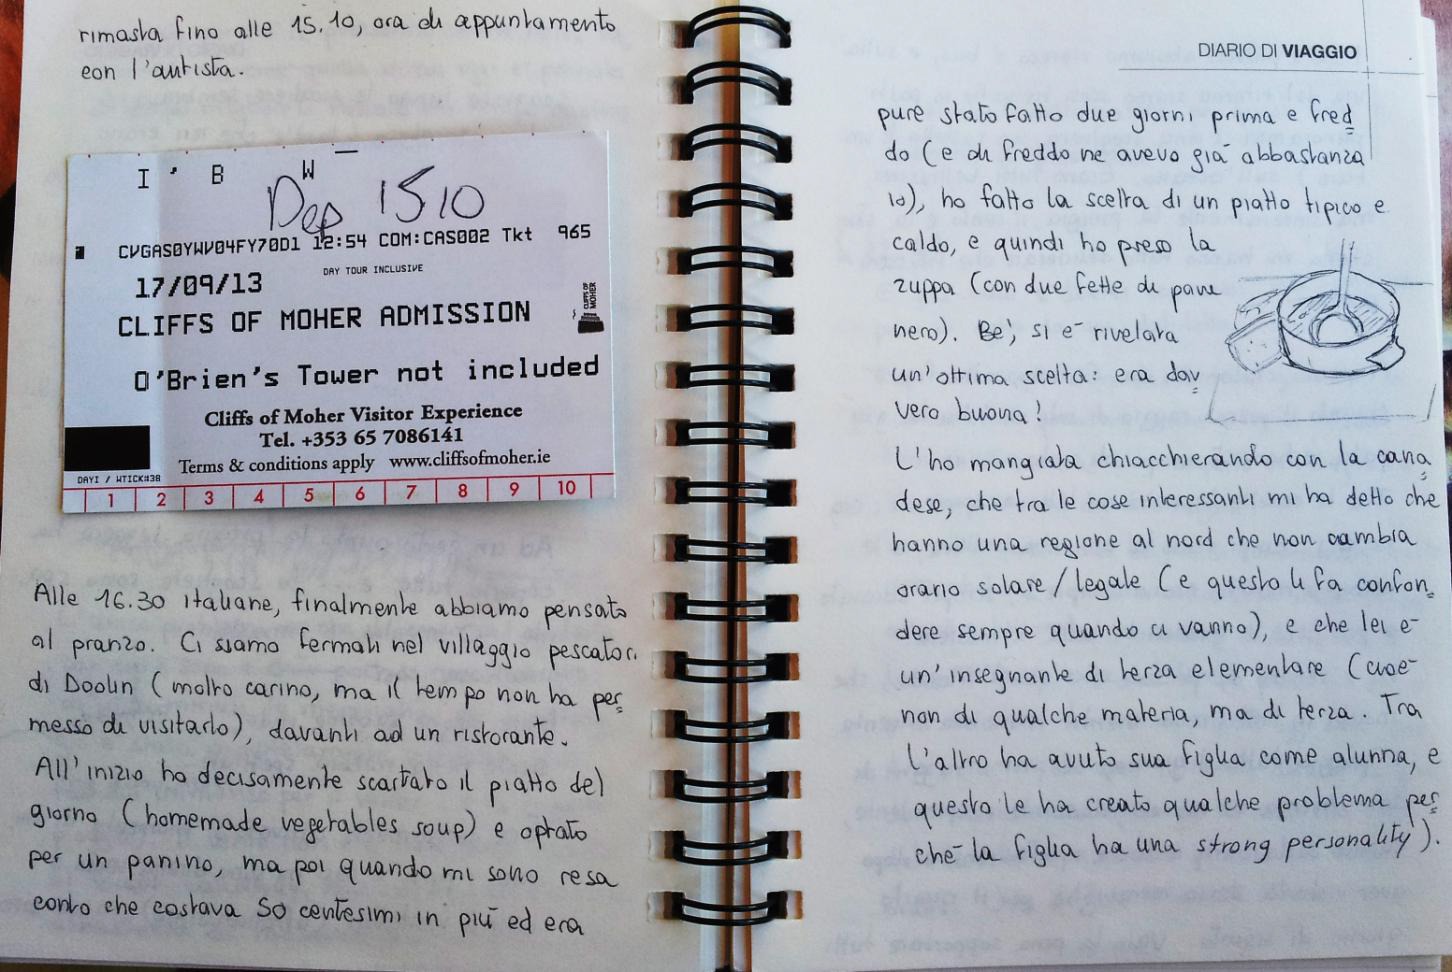 rimasta fino alle 15.10, ora di appuntamento
con l'autista.
I ' B W
Dep 1510
CVGAS0YWV04FY70D1 12:54 COM:CAS002 Tkt 965
DAY TOUR INCLUSIVE
17/09/13
CLIFFS OF MOHER
CLIFFS OF MOHER ADMISSION
O'Brien's Tower not included
Cliffs of Moher Visitor Experience
Tel. +353 65 7086141
Terms & conditions apply www.cliffsofmoher.ie
DAYI / WTICK#38
1 2 3 4 5 6 7 8 9 10
Alle 16.30 italiane, finalmente abbiamo pensato
al pranzo. Ci siamo fermati nel villaggio pescatori
di Doolin (molto carino, ma il tempo non ha per
messo di visitarlo), davanti ad un ristorante.
All'inizio ho decisamente scartato il piatto del
giorno (homemade vegetables soup) e optato
per un panino, ma poi quando mi sono resa
conto che costava 50 centesimi in più ed era
DIARIO DI VIAGGIO
pure stato fatto due giorni prima e fred
do (e di freddo ne avevo già abbastanza
io), ho fatto la scelta di un piatto tipico e
caldo, e quindi ho preso la
zuppa (con due fette di pane
nero). Be', si è rivelata
un'ottima scelta: era dav
vero buona!
L'ho mangiata chiacchierando con la cana
dese, che tra le cose interessanti mi ha detto che
hanno una regione al nord che non cambia
orario solare/legale (e questo li fa confon
dere sempre quando ci vanno), e che lei è
un'insegnante di terza elementare (cioè
non di qualche materia, ma di terza. Tra
l'altro ha avuto sua figlia come alunna, e
questo le ha creato qualche problema per
ché la figlia ha una strong personality).